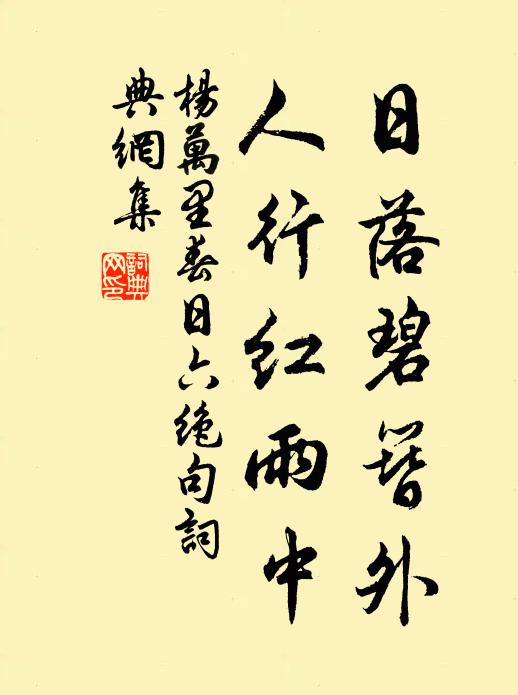 日落碧簪外
人行紅雨中
楊萬里春日六絕句詞
典網集
詞典
网印